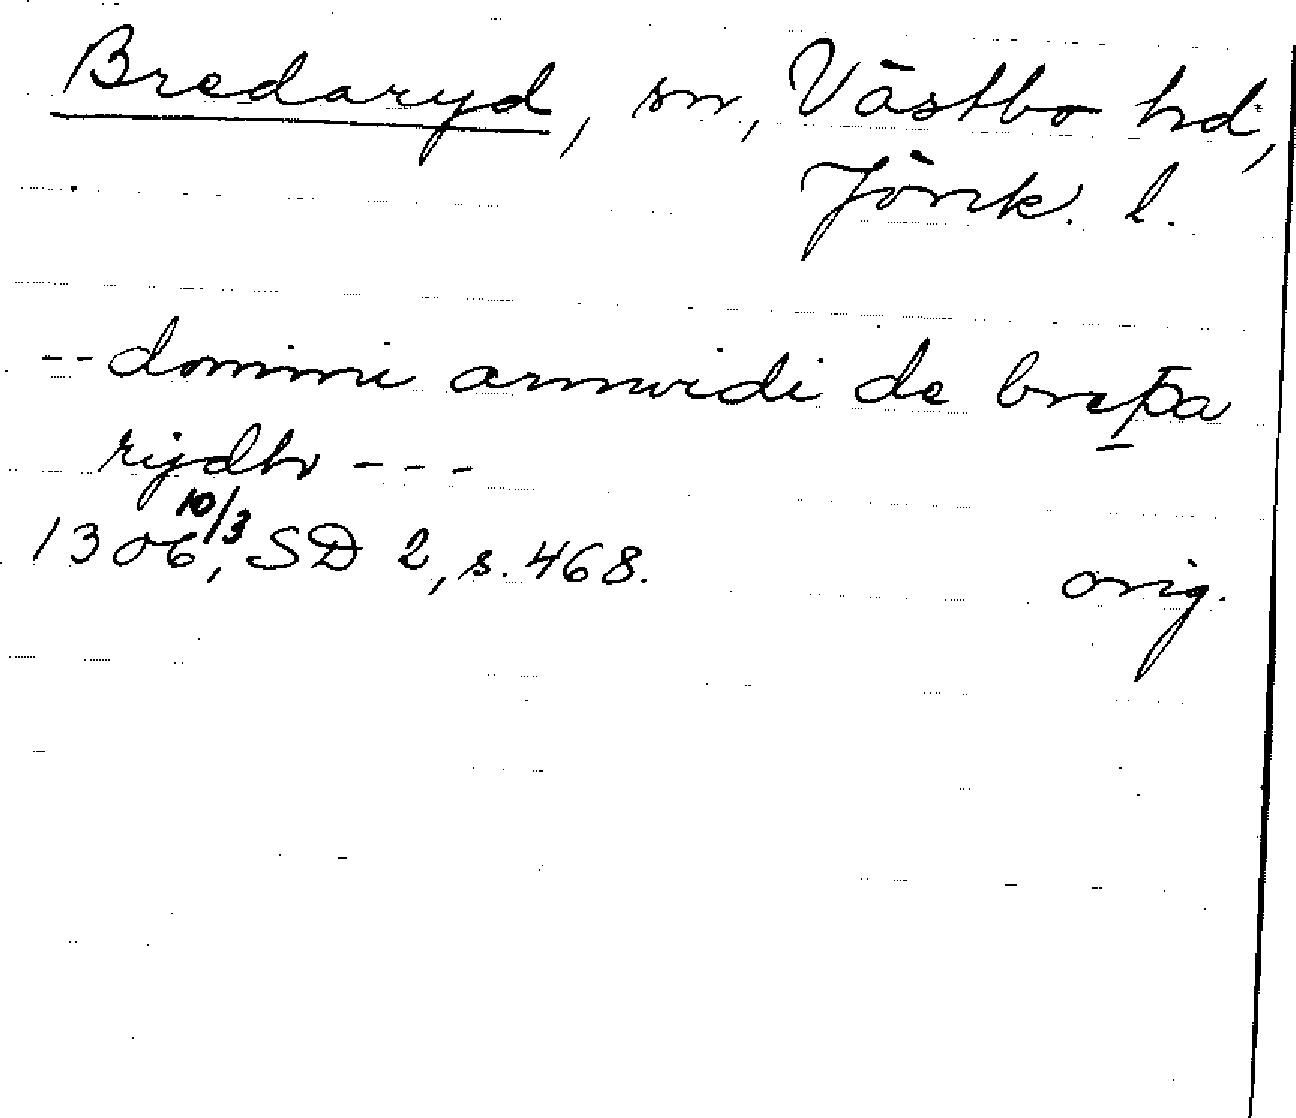 Bredaryd, sn, Västbo hd,
Jönk. l.
-- domini arnuidi de breþa
rijdhr ---
1306 10/3, SD 2, s. 468. orig.